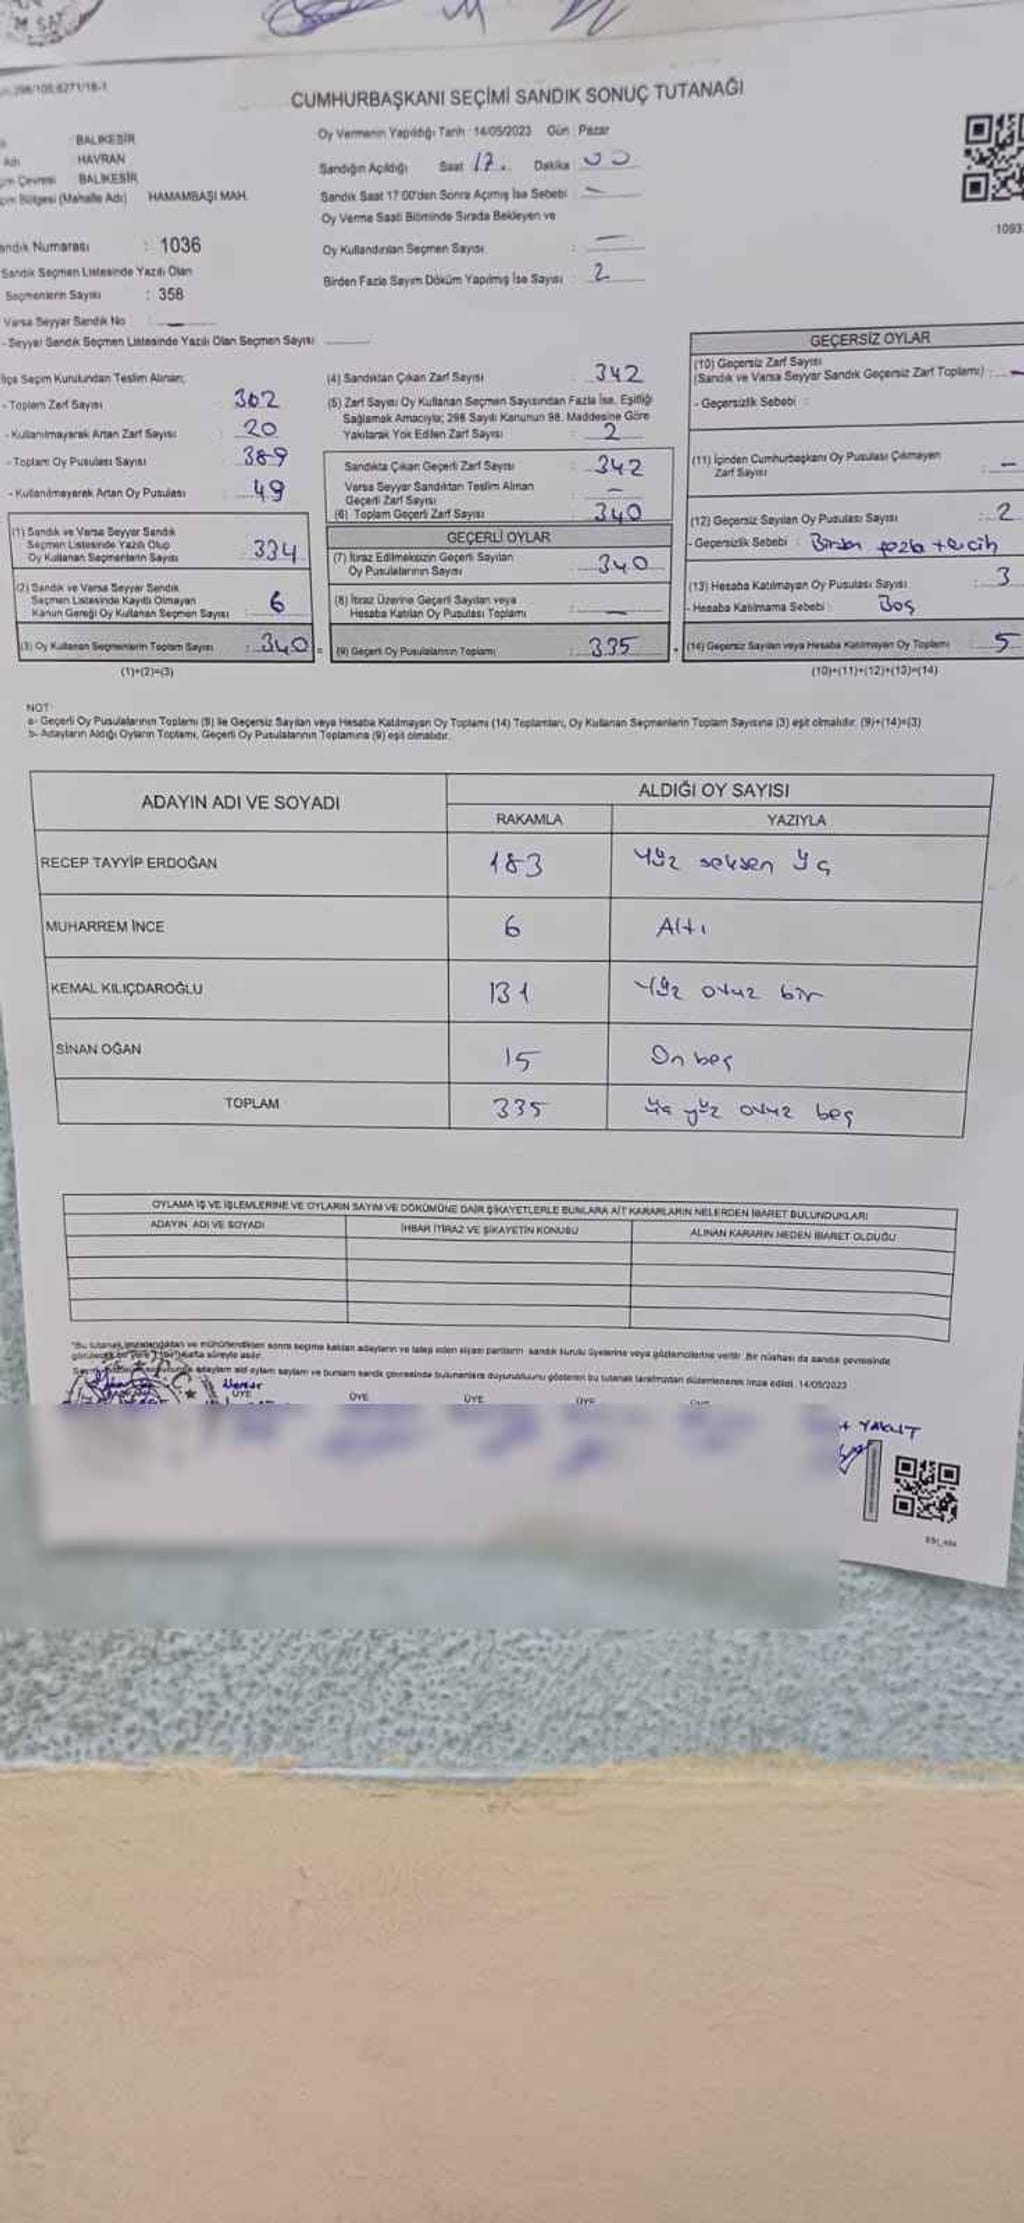 M SA
298/105.6271/18-1
CUMHURBAŞKANI SEÇİMİ SANDIK SONUÇ TUTANAĞI
: BALIKESİR
Adı : HAVRAN
Çevresi : BALIKESİR
Bölgesi (Mahalle Adı) HAMAMBAŞI MAH.
andık Numarası : 1036
Sandık Seçmen Listesinde Yazılı Olan
Seçmenlerin Sayısı : 358
Varsa Seyyar Sandık No : —
- Seyyar Sandık Seçmen Listesinde Yazılı Olan Seçmen Sayısı
Oy Vermenin Yapıldığı Tarih : 14/05/2023 Gün : Pazar
Sandığın Açıldığı Saat 17.. Dakika 00
Sandık Saat 17:00'den Sonra Açımış İse Sebebi : —
Oy Verme Saati Bitiminde Sırada Bekleyen ve
Oy Kullandırılan Seçmen Sayısı : —
Birden Fazla Sayım Döküm Yapılmış İse Sayısı : 2
1093
İlçe Seçim Kurulundan Teslim Alınan;
- Toplam Zarf Sayısı : 362
- Kullanılmayarak Artan Zarf Sayısı : 20
- Toplam Oy Pusulası Sayısı : 389
- Kullanılmayarak Artan Oy Pusulası : 49
(1) Sandık ve Varsa Seyyar Sandık
Seçmen Listesinde Yazılı Olup
Oy Kullanan Seçmenlerin Sayısı : 334
(2) Sandık ve Varsa Seyyar Sandık
Seçmen Listesinde Kayıtlı Olmayan
Kanun Gereği Oy Kullanan Seçmen Sayısı : 6
(3) Oy Kullanan Seçmenlerin Toplam Sayısı : 340 =
(1)+(2)=(3)
(4) Sandıktan Çıkan Zarf Sayısı : 342
(5) Zarf Sayısı Oy Kullanan Seçmen Sayısından Fazla İse, Eşitliği
Sağlamak Amacıyla; 298 Sayılı Kanunun 98. Maddesine Göre
Yakılarak Yok Edilen Zarf Sayısı : 2
Sandıkta Çıkan Geçerli Zarf Sayısı : 342
Varsa Seyyar Sandıktan Teslim Alınan
Geçerli Zarf Sayısı : —
(6) Toplam Geçerli Zarf Sayısı : 340
GEÇERLİ OYLAR
(7) İtiraz Edilmeksizin Geçerli Sayılan
Oy Pusulalarının Sayısı : 340
(8) İtiraz Üzerine Geçerli Sayılan veya
Hesaba Katılan Oy Pusulası Toplamı : —
(9) Geçerli Oy Pusulalarının Toplamı : 335 +
GEÇERSİZ OYLAR
(10) Geçersiz Zarf Sayısı
(Sandık ve Varsa Seyyar Sandık Geçersiz Zarf Toplamı) : —
- Geçersizlik Sebebi :
(11) İçinden Cumhurbaşkanı Oy Pusulası Çıkmayan
Zarf Sayısı : —
(12) Geçersiz Sayılan Oy Pusulası Sayısı : 2
- Geçersizlik Sebebi : Birden fazla tercih
(13) Hesaba Katılmayan Oy Pusulası Sayısı : 3
- Hesaba Katılmama Sebebi : Boş
(14) Geçersiz Sayılan veya Hesaba Katılmayan Oy Toplamı : 5
(10)+(11)+(12)+(13)=(14)
NOT:
a- Geçerli Oy Pusulalarının Toplamı (9) ile Geçersiz Sayılan veya Hesaba Katılmayan Oy Toplamı (14) Toplamları, Oy Kullanan Seçmenlerin Toplam Sayısına (3) eşit olmalıdır. (9)+(14)=(3)
b- Adayların Aldığı Oyların Toplamı, Geçerli Oy Pusulalarının Toplamına (9) eşit olmalıdır.
ADAYIN ADI VE SOYADI ALDIĞI OY SAYISI
RAKAMLA YAZIYLA
RECEP TAYYİP ERDOĞAN 183 Yüz seksen üç
MUHARREM İNCE 6 Altı
KEMAL KILIÇDAROĞLU 131 Yüz otuz bir
SİNAN OĞAN 15 On beş
TOPLAM 335 üç yüz otuz beş
OYLAMA İŞ VE İŞLEMLERİNE VE OYLARIN SAYIM VE DÖKÜMÜNE DAİR ŞİKAYETLERLE BUNLARA AİT KARARLARIN NELERDEN İBARET BULUNDUKLARI
ADAYIN ADI VE SOYADI İHBAR İTİRAZ VE ŞİKAYETİN KONUSU ALINAN KARARIN NEDEN İBARET OLDUĞU
"Bu tutanak imzalandıktan ve mühürlendikten sonra seçime katılan adayların ve talep eden siyasi partilerin sandık kurulu üyelerine veya gözlemcilerine verilir. Bir nüshası da sandık çevresinde
görülecek bir yere 1 (bir) hafta süreyle asılır.
adayların aldı oyların sayılarını ve bunların sandık çevresinde bulunanlara duyurulduğunu gösteren bu tutanak tarafımızdan düzenlenerek imza edildi. 14/05/2023
T.C.
ÜYE ÜYE ÜYE ÜYE
YAKUT